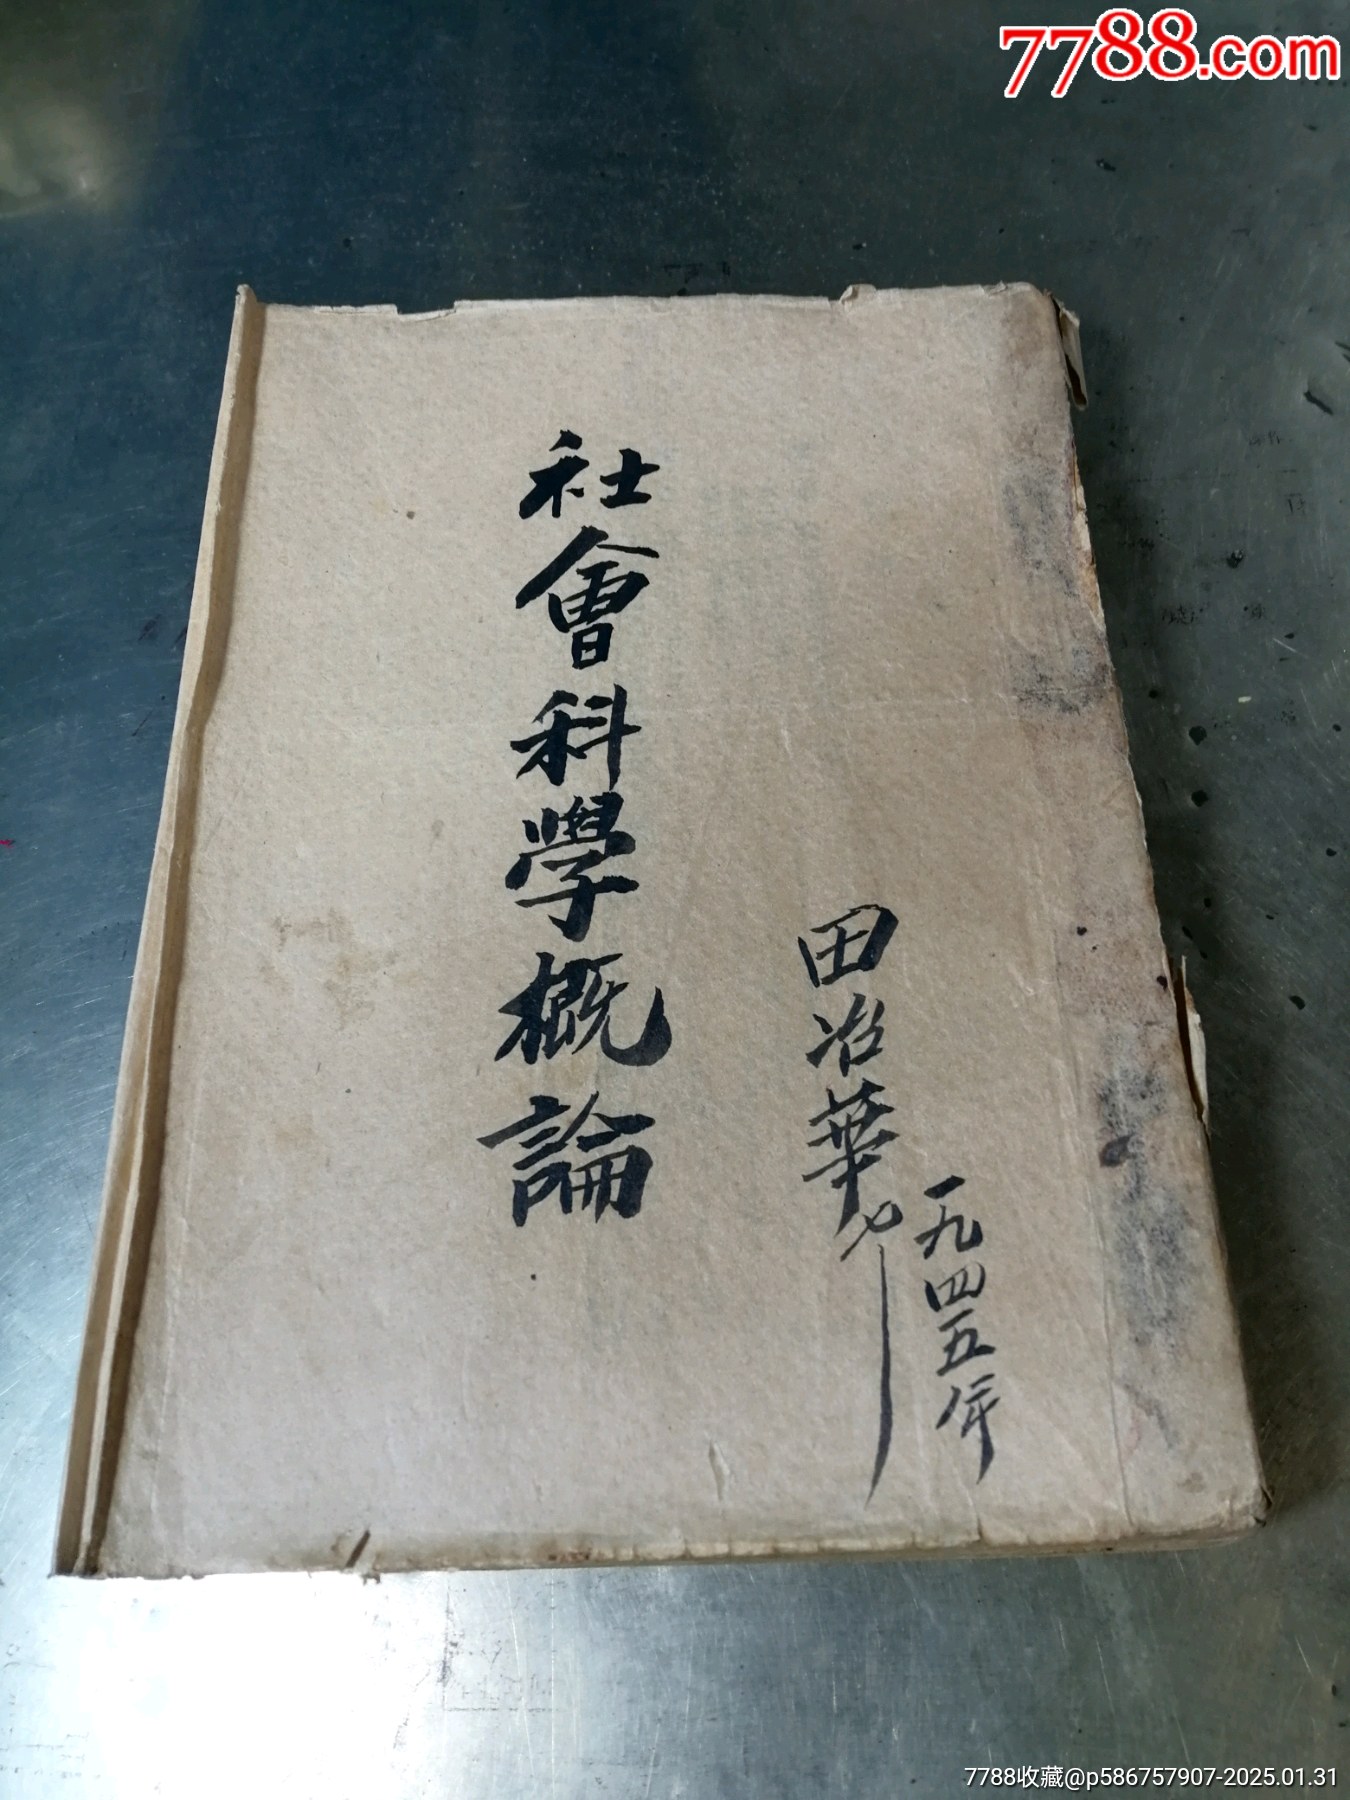 7788.com
社會科學概論
田冶華
一九四五年
7788收藏@p586757907-2025.01.31